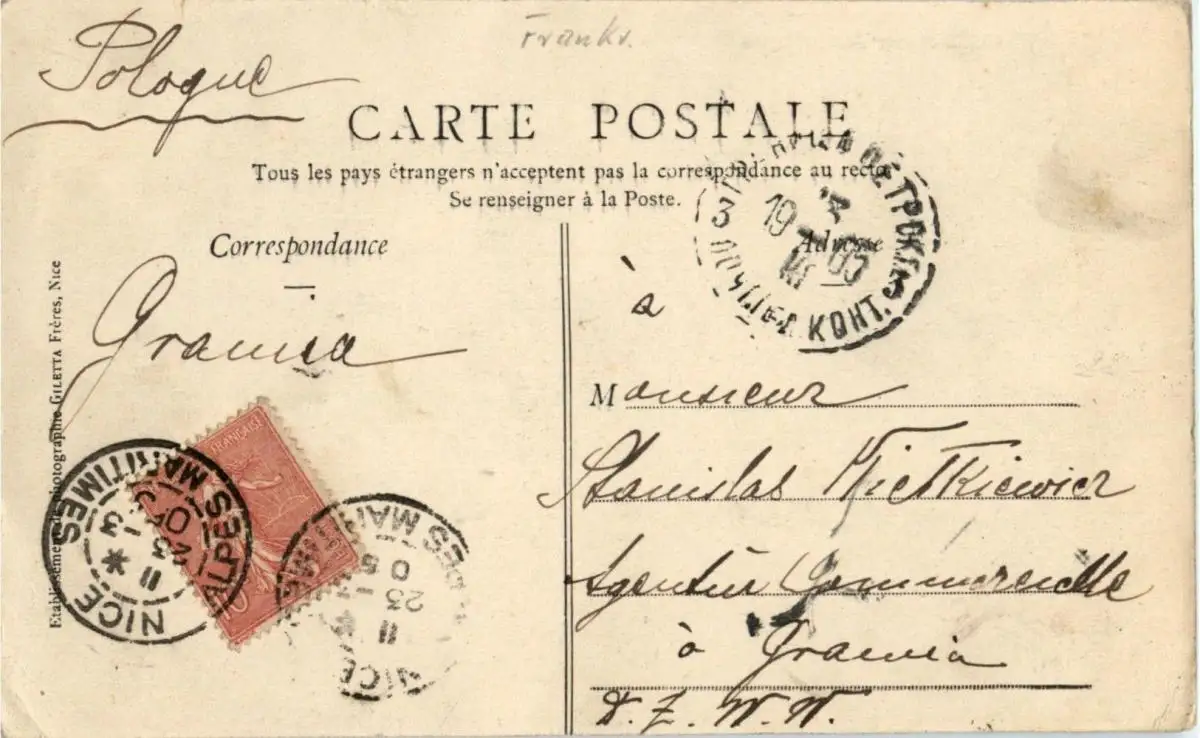 Frankr.
Pologne
CARTE POSTALE
Tous les pays étrangers n'acceptent pas la correspondance au recto
Se renseigner à la Poste.
Correspondance
Adresse
Granica
à
Monsieur
Stanislas Kietkiewicz
Agentur Commercielle
à Granica
D. Z. W. W.
Etablissements de photographie GILETTA Frères, Nice
FRANÇAISE
NICE
ALPES MARITIMES
11
23 - 3
05
NICE
11
23
05
3
КОНТ.
3
19